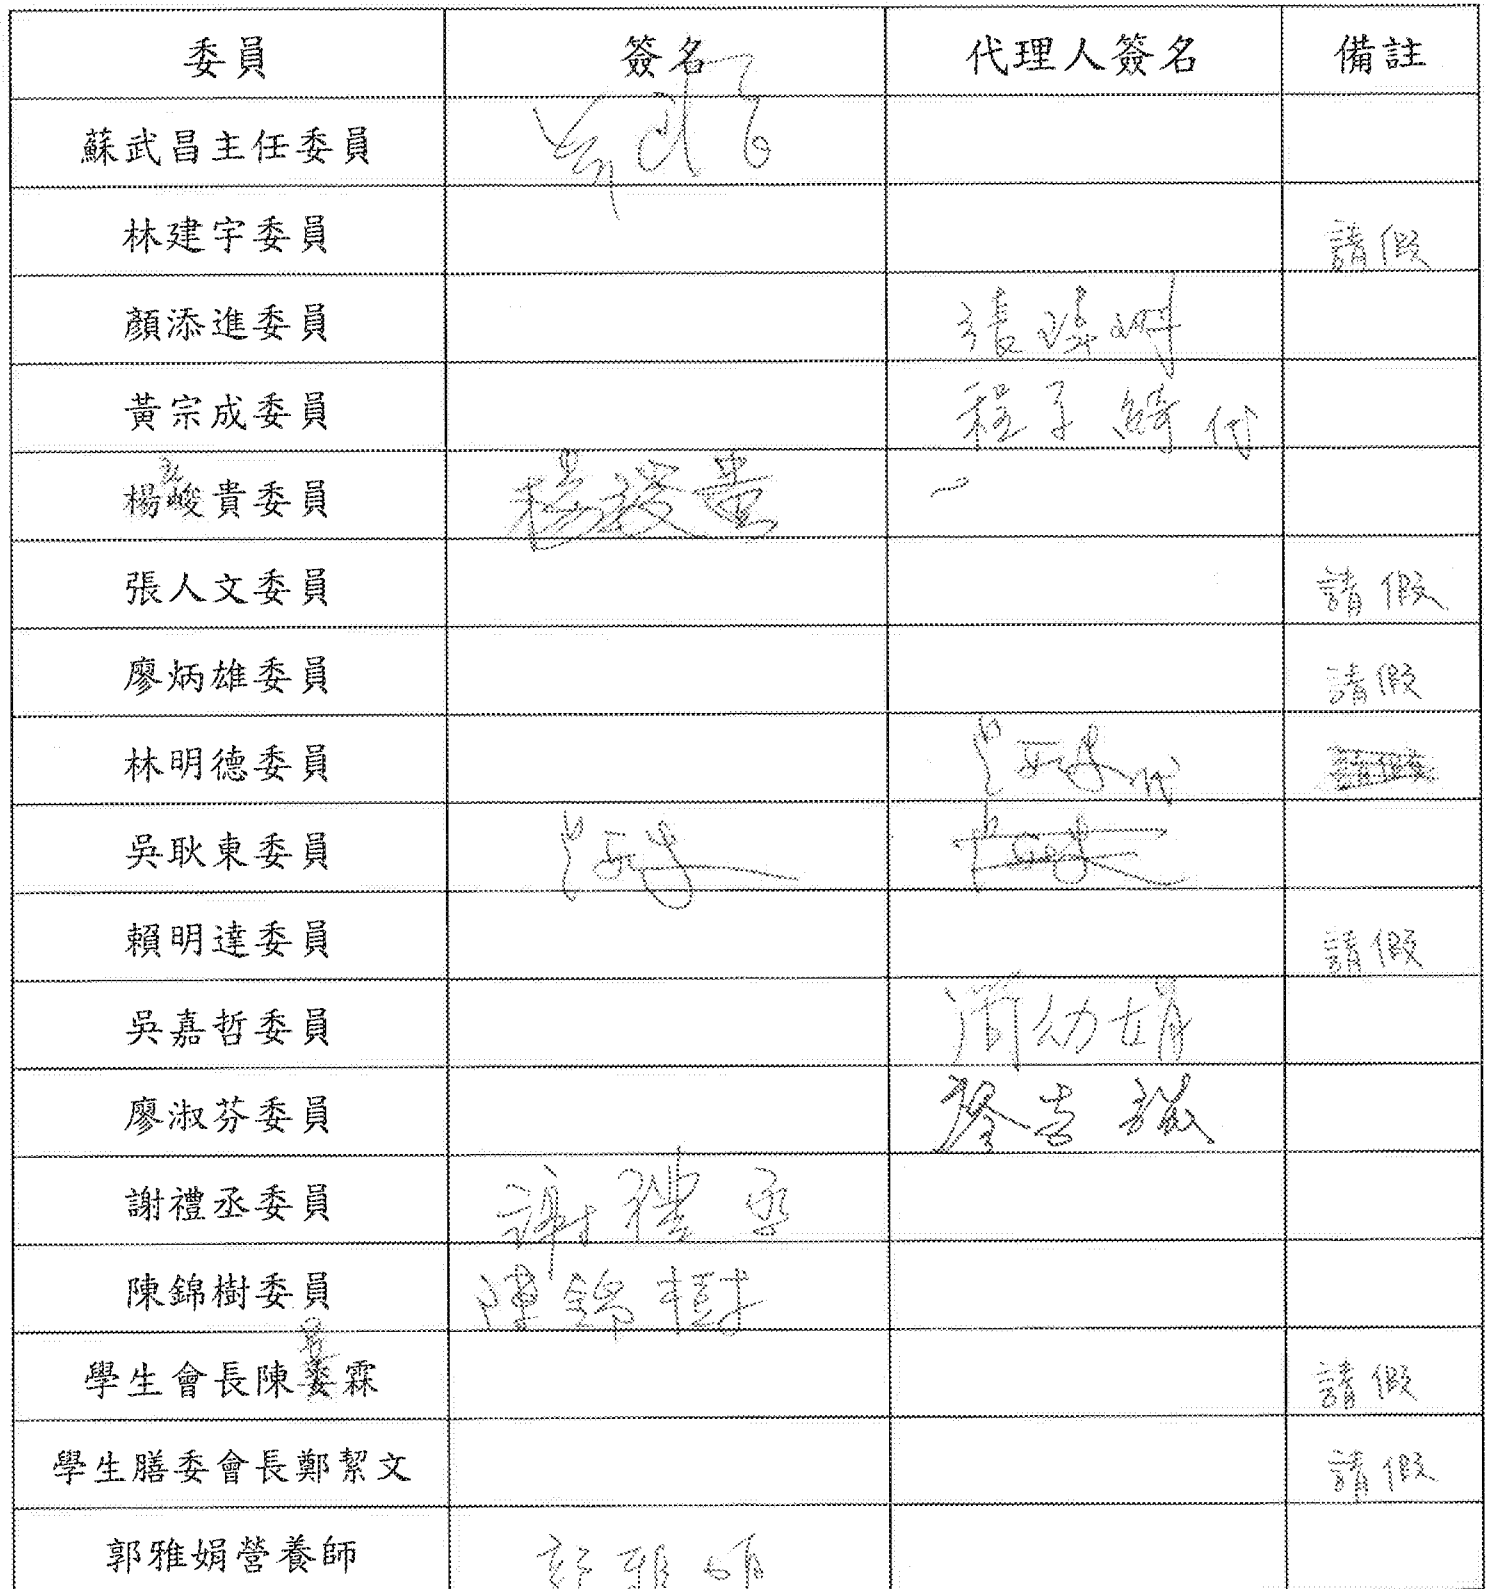 委員 簽名 代理人簽名 備註
蘇武昌主任委員
林建宇委員 請假
顏添進委員
黃宗成委員 程子綺代
楊峻貴委員
張人文委員 請假
廖炳雄委員 請假
林明德委員 代
吳耿東委員
賴明達委員 請假
吳嘉哲委員 周幼娟
廖淑芬委員
謝禮丞委員 謝禮丞
陳錦樹委員 陳錦樹
學生會長陳霖 請假
學生膳委會長鄭絜文 請假
郭雅娟營養師 郭雅娟